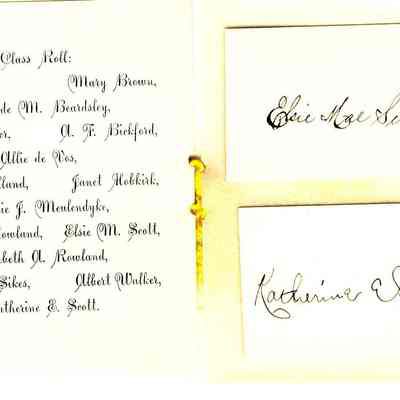 Class Roll:
Mary Brown,
de M. Beardsley,
or, A. F. Bickford,
Allie de Vos,
lland, Janet Hobkirk,
ie J. Meulendyke,
owland, Elsie M. Scott,
beth A. Rowland,
Sikes, Albert Walker,
atherine E. Scott.
Elsie Mae S
Katherine E